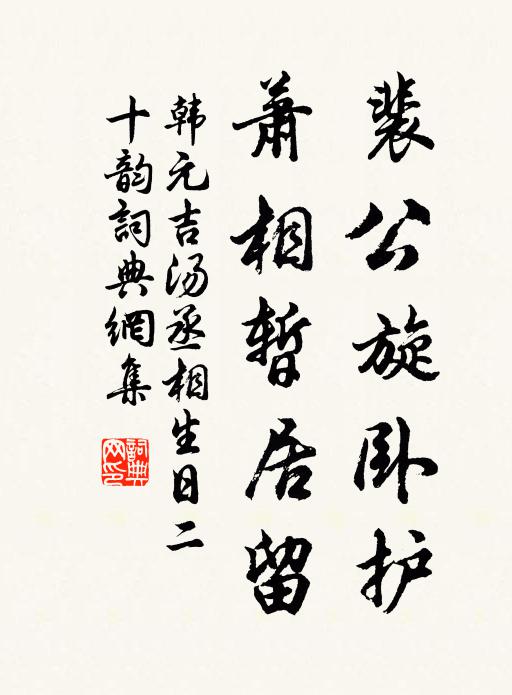 裴公旋卧护
萧相暂居留
韩元吉汤丞相生日二
十韵詞典網集
詞典网印